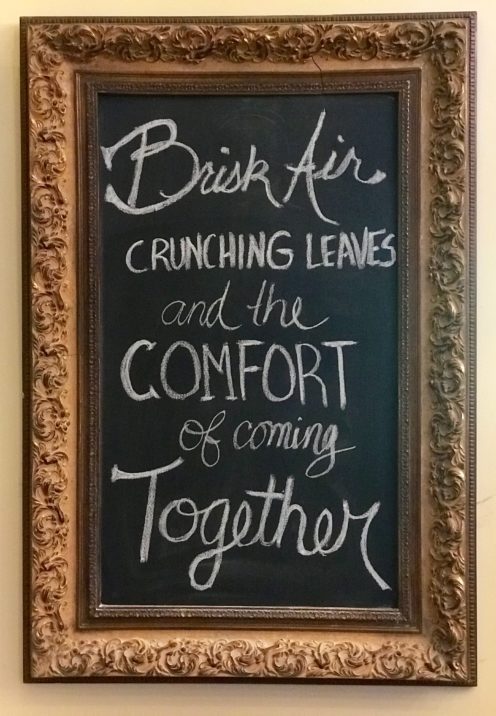 Brisk Air
CRUNCHING LEAVES
and the
COMFORT
of coming
Together